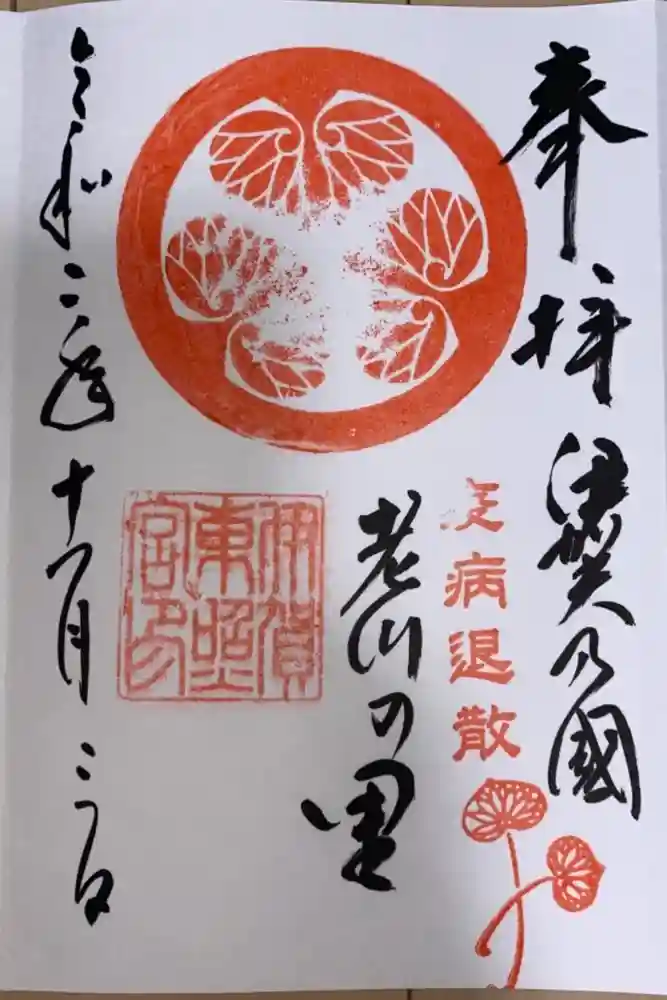 奉拝 伊賀乃國
疫病退散
老川の里
伊賀
東照
宮印
令和二年十一月三日